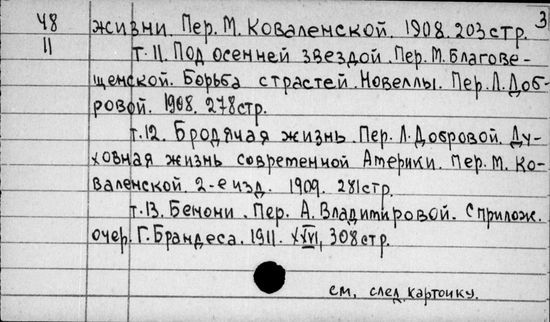 48 жизни. Пер. М. Коваленской. 1908. 203 стр. 3
11 т. 11. Под осенней звездой. Пер. М. Благове-
щенской. Борьба страстей. Новеллы. Пер. Л. Доб-
ровой. 1908. 278 стр.
т. 12. Бродячая жизнь. Пер. Л. Добровой. Ду-
ховная жизнь современной Америки. Пер. М. Ко-
валенской. 2-е изд. 1909. 281 стр.
т. 13. Бенони. Пер. А. Владимировой. С прилож.
очер. Г. Брандеса. 1911. XXVI, 308 стр.
см. след. карточку.